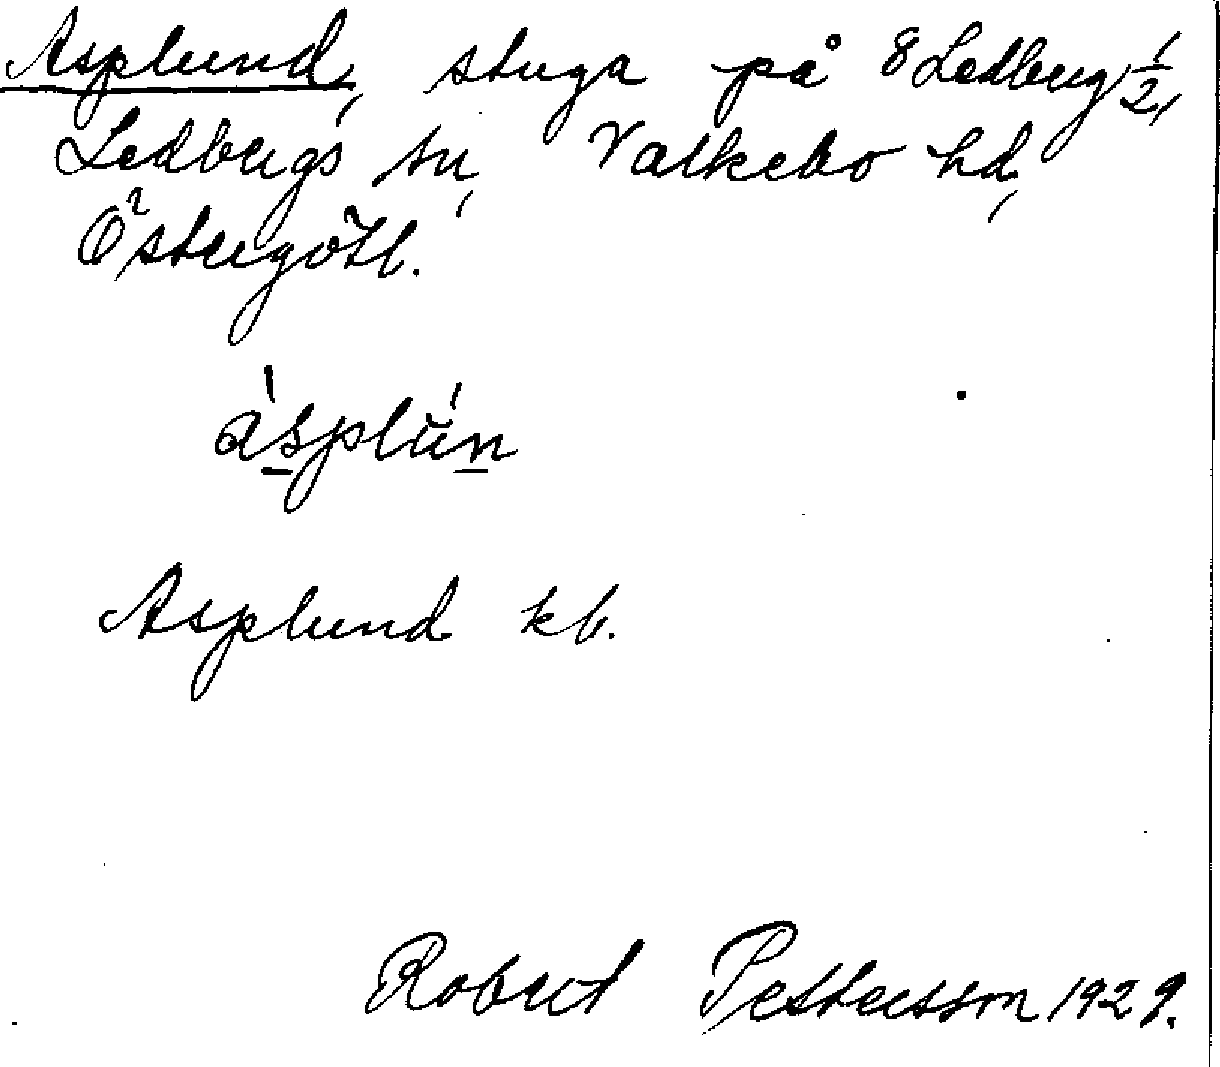 Asplund, stuga på 8 Ledberg 1/2,
Ledbergs sn, Valkebo hd,
Östergötl.
ásplún
Asplund kb.
Robert Pettersson 1929.